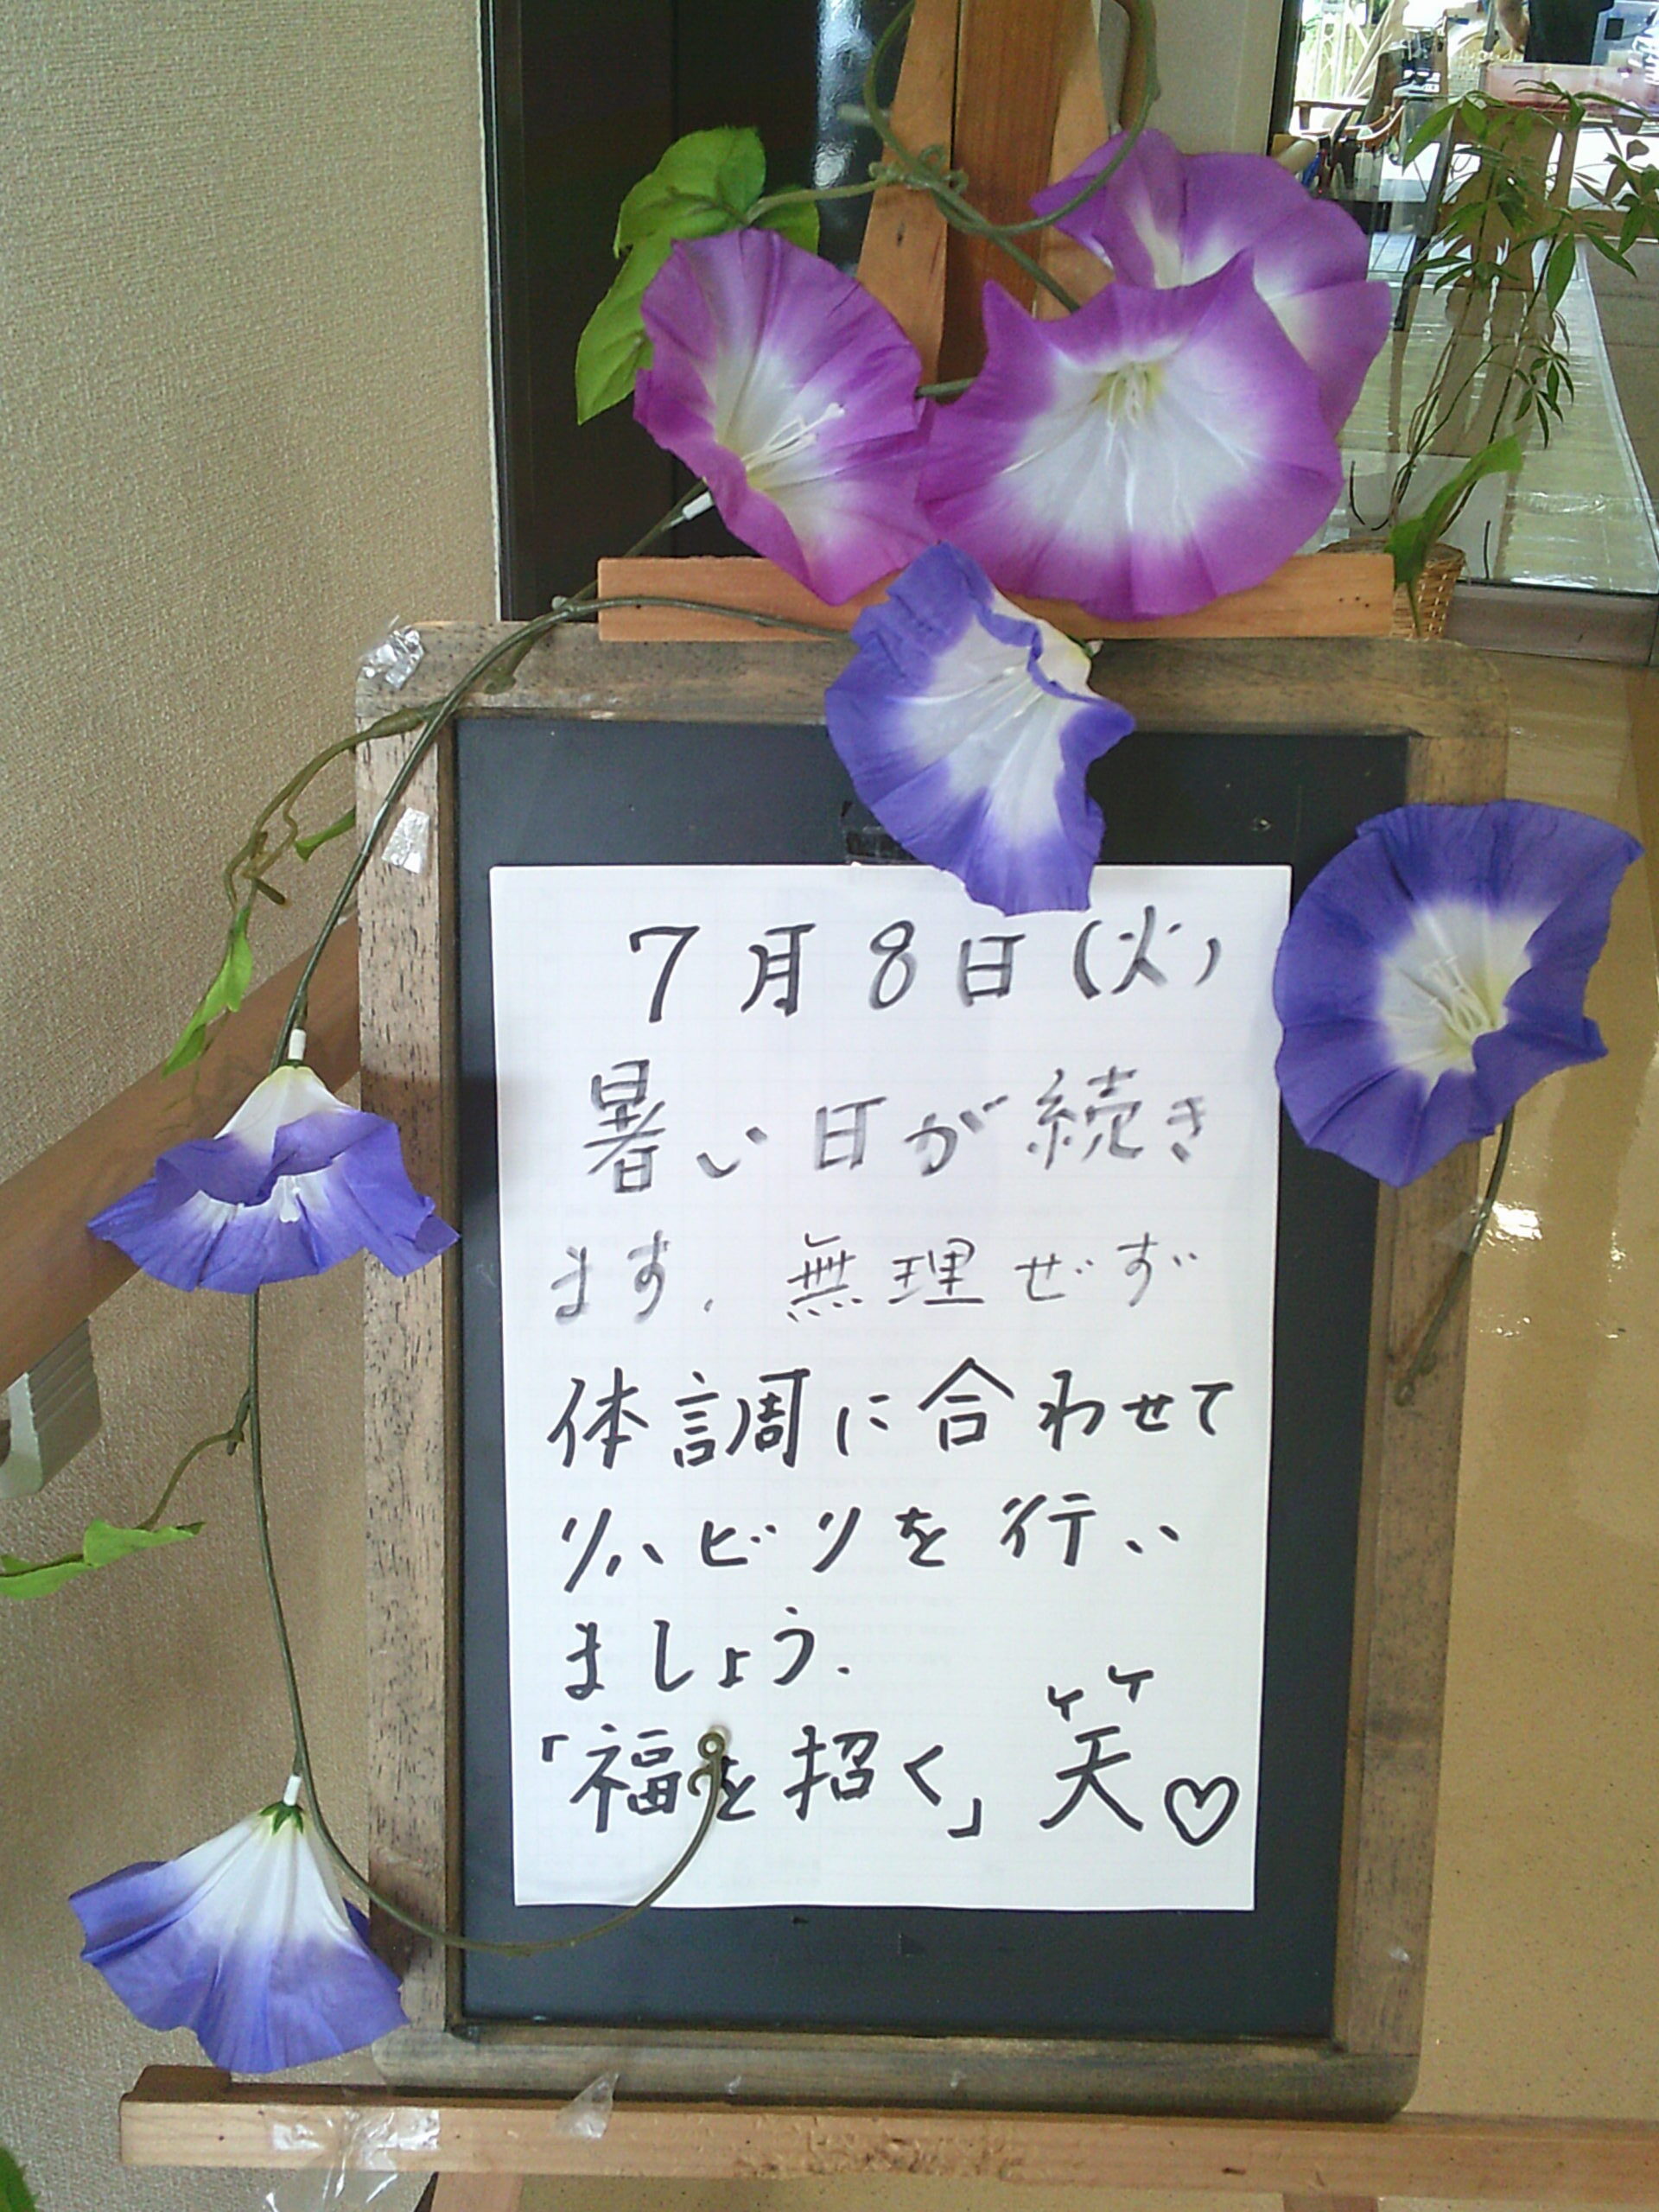 7月8日(火)
暑い日が続き
ます.無理せず
体調に合わせて
リハビリを行い
ましょう.
「福を招く」笑♡